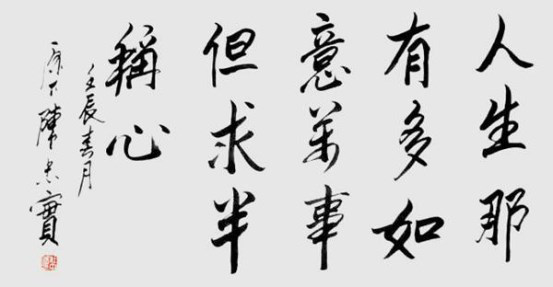 人生那
有多如
意萬事
但求半
稱心
壬辰春月
原下陳忠實